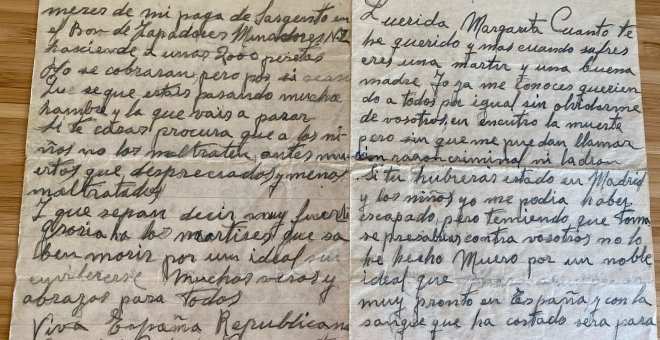 meses de mi paga de Sargento en
el Bon de Zapadores Minadores Nº 2
hasciende a unas 2000 pesetas
No se cobraran pero por si acaso
que se que estais pasando mucha
hambre y la que vais a pasar
si te casas procura que a los ni-
ños no los maltraten, antes mu-
ertos que despreciados y menos
maltratados
Y que sepan decir muy fuerte
gloria ha los martires que sa
ben morir por un ideal sin
envilecerse Muchos besos y
abrazos para Todos
Viva España Republicana
Querida Margarita Cuanto te
he querido y mas cuando sufres
eres una martir y una buena
madre. Yo ya me conoces querien
do a todos por igual sin olvidarme
de vosotros, en encuentro la muerte
pero sin que me puedan llamar
sin razon criminal ni ladron
Si tu hubieras estado en Madrid
y los niños yo me podia haber
escapado, pero temiendo que toma
se presalias contra vosotros no lo
he hecho Muero por un noble
ideal que
muy pronto en España y con la
sangre que ha costado sera para